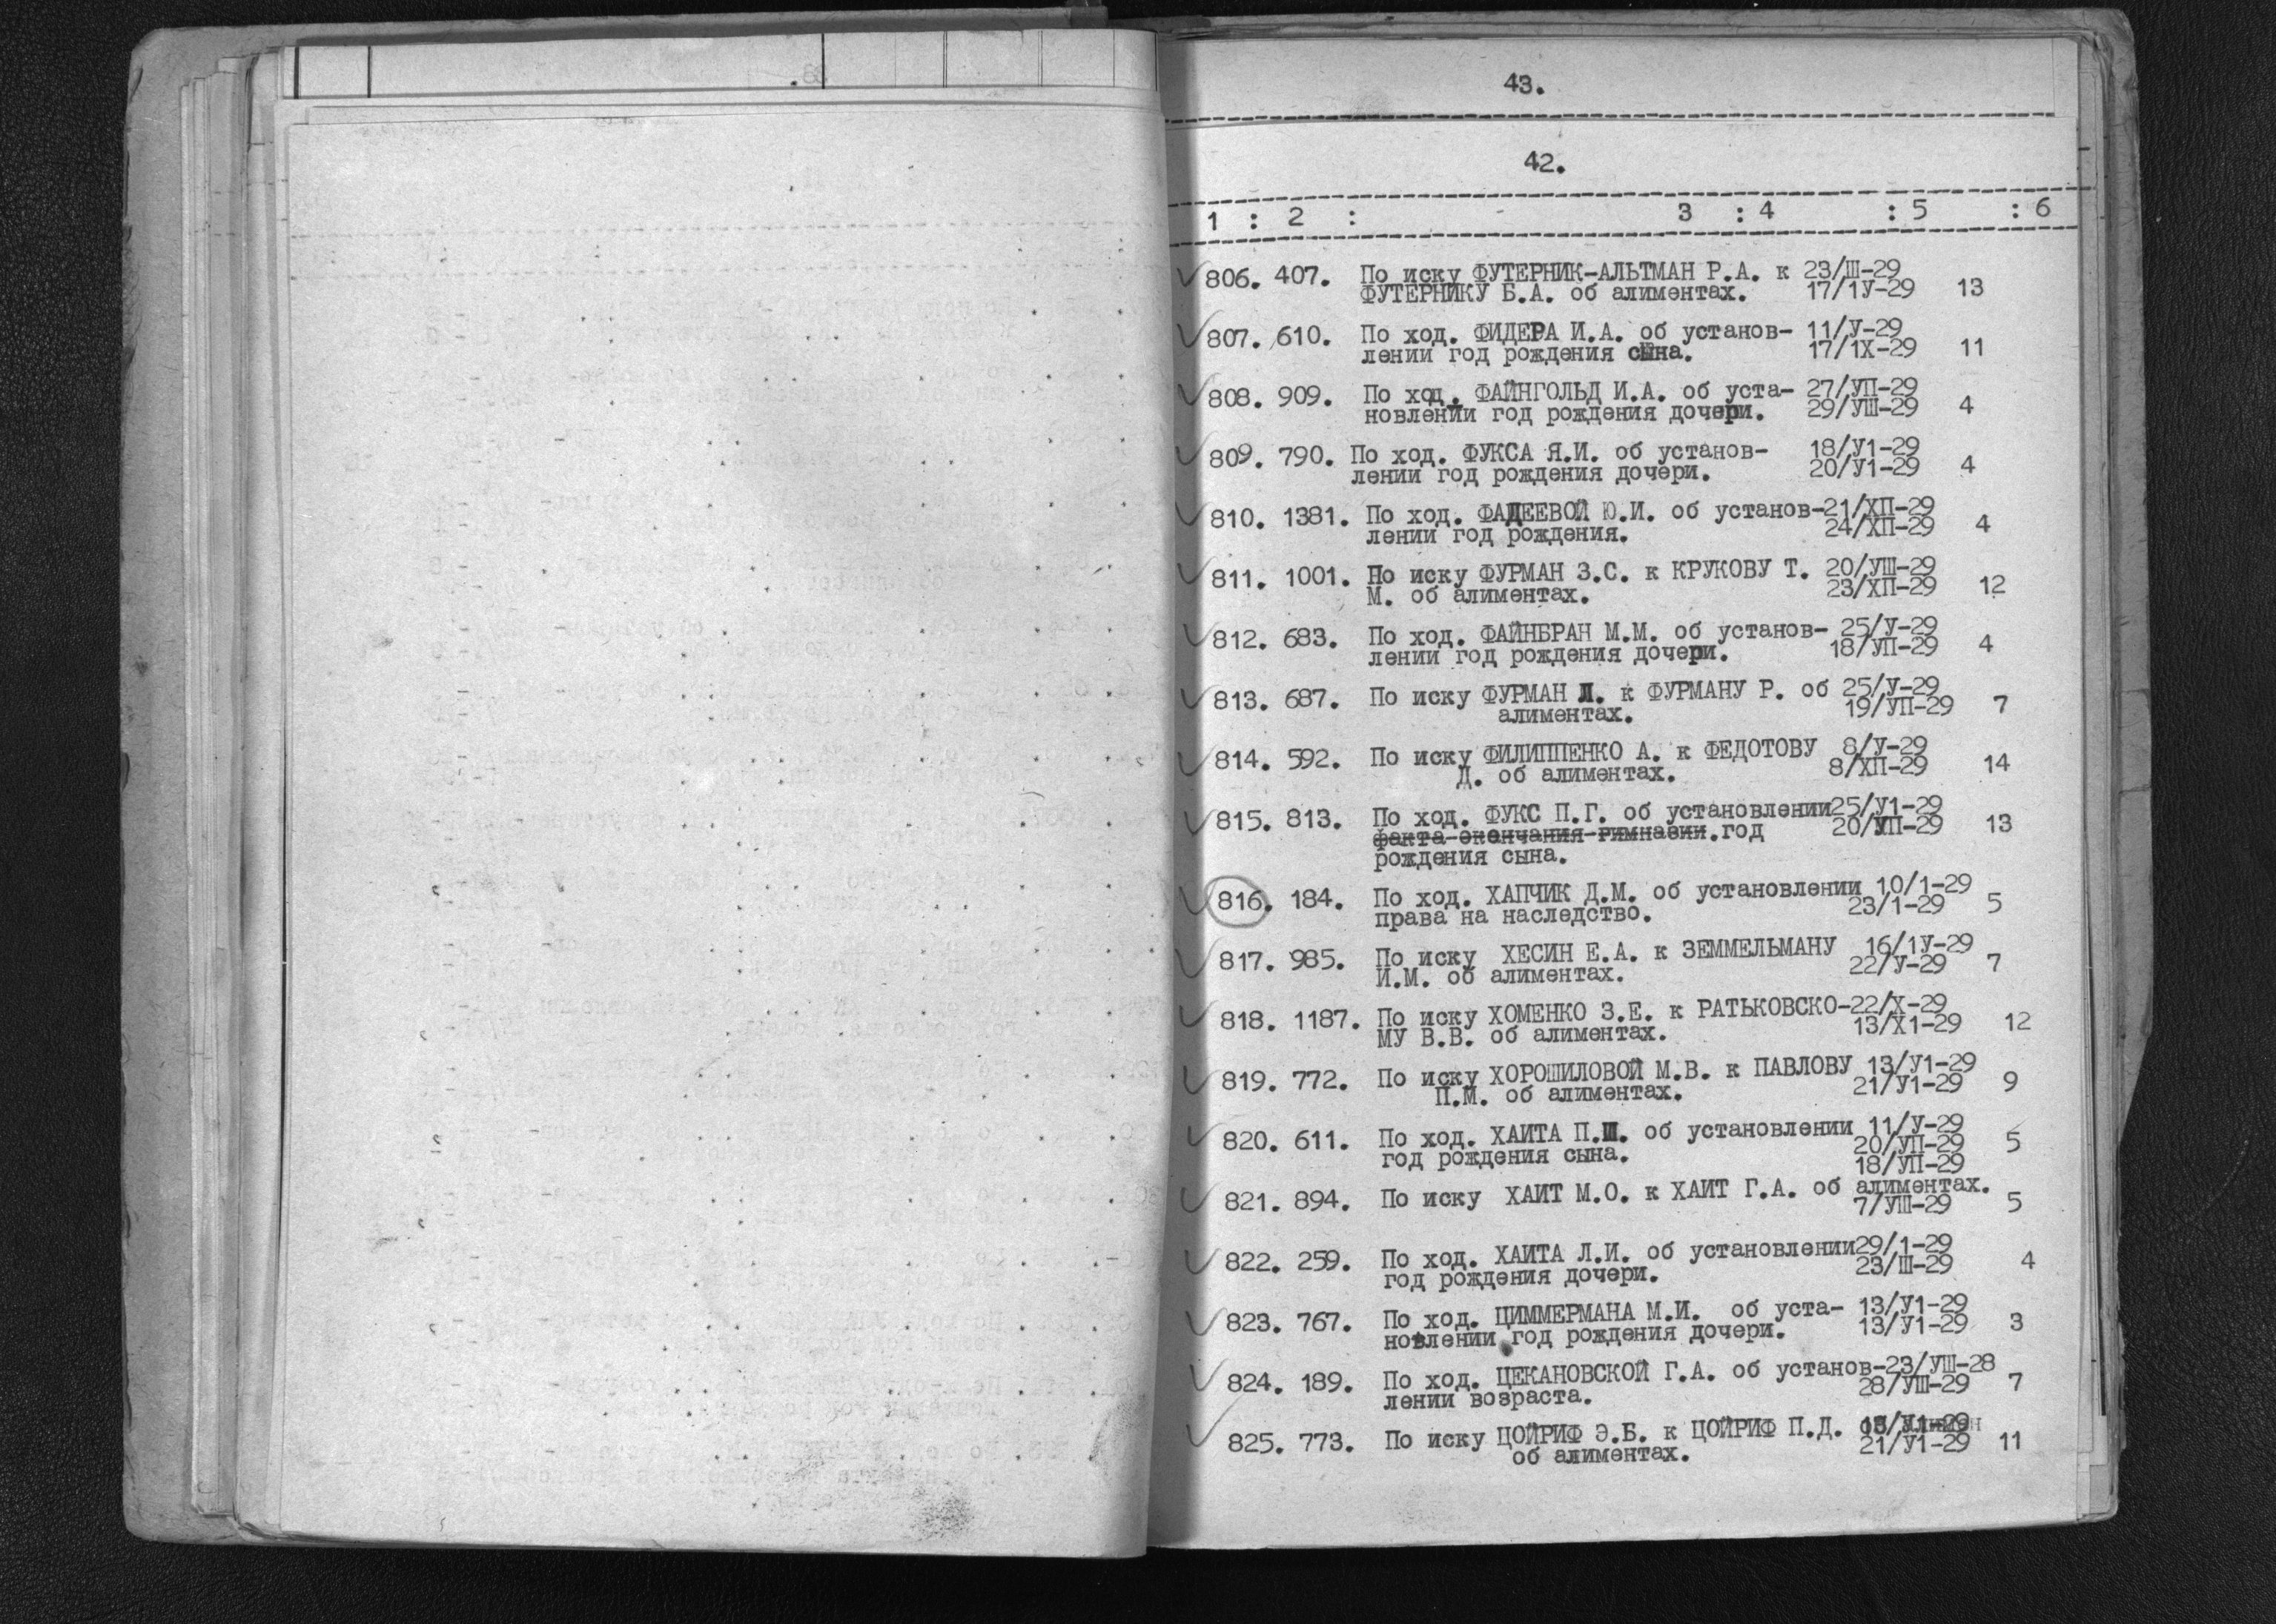 43.
42.
1 : 2 : - 3 : 4 : 5 : 6
806. 407. По иску ФУТЕРНИК-АЛЬТМАН Р.А. к 23/Ш-29
ФУТЕРНИКУ Б.А. об алиментах. 17/1У-29 13
807. 610. По ход. ФИДЕРА И.А. об установ- 11/У-29
лении год рождения сына. 17/1Х-29 11
808. 909. По ход. ФАЙНГОЛЬД И.А. об уста- 27/УП-29
новлении год рождения дочери. 29/УШ-29 4
809. 790. По ход. ФУКСА Я.И. об установ- 18/У1-29
лении год рождения дочери. 20/У1-29 4
810. 1381. По ход. ФАДЕЕВОЙ Ю.И. об установ-21/ХП-29
лении год рождения. 24/ХП-29 4
811. 1001. По иску ФУРМАН З.С. к КРУКОВУ Т. 20/УШ-29
М. об алиментах. 23/ХП-29 12
812. 683. По ход. ФАЙНБРАН М.М. об установ- 25/У-29
лении год рождения дочери. 18/УП-29 4
813. 687. По иску ФУРМАН Л. к ФУРМАНУ Р. об 25/У-29
алиментах. 19/УП-29 7
814. 592. По иску ФИЛИППЕНКО А. к ФЕДОТОВУ 8/У-29
Д. об алиментах. 8/ХП-29 14
815. 813. По ход. ФУКС П.Г. об установлении25/У1-29
факта-окончания-гимназии.год 20/УП-29 13
рождения сына.
816. 184. По ход. ХАПЧИК Д.М. об установлении 10/1-29
права на наследство. 23/1-29 5
817. 985. По иску ХЕСИН Е.А. к ЗЕММЕЛЬМАНУ 16/1У-29
И.М. об алиментах. 22/У-29 7
818. 1187. По иску ХОМЕНКО З.Е. к РАТЬКОВСКО-22/Х-29
МУ В.В. об алиментах. 13/Х1-29 12
819. 772. По иску ХОРОШИЛОВОЙ М.В. к ПАВЛОВУ 13/У1-29
П.М. об алиментах. 21/У1-29 9
820. 611. По ход. ХАИТА П.Ш. об установлении 11/У-29
год рождения сына. 20/УП-29 5
18/УП-29
821. 894. По иску ХАИТ М.О. к ХАИТ Г.А. об алиментах.
7/УШ-29 5
822. 259. По ход. ХАИТА Л.И. об установлении29/1-29
год рождения дочери. 23/Ш-29 4
823. 767. По ход. ЦИММЕРМАНА М.И. об уста- 13/У1-29
новлении год рождения дочери. 13/У1-29 3
824. 189. По ход. ЦЕКАНОВСКОЙ Г.А. об установ-23/УШ-28
лении возраста. 28/УШ-29 7
825. 773. По иску ЦОЙРИФ Э.Б. к ЦОЙРИФ П.Д. 13/У1-29
об алиментах. 21/У1-29 11